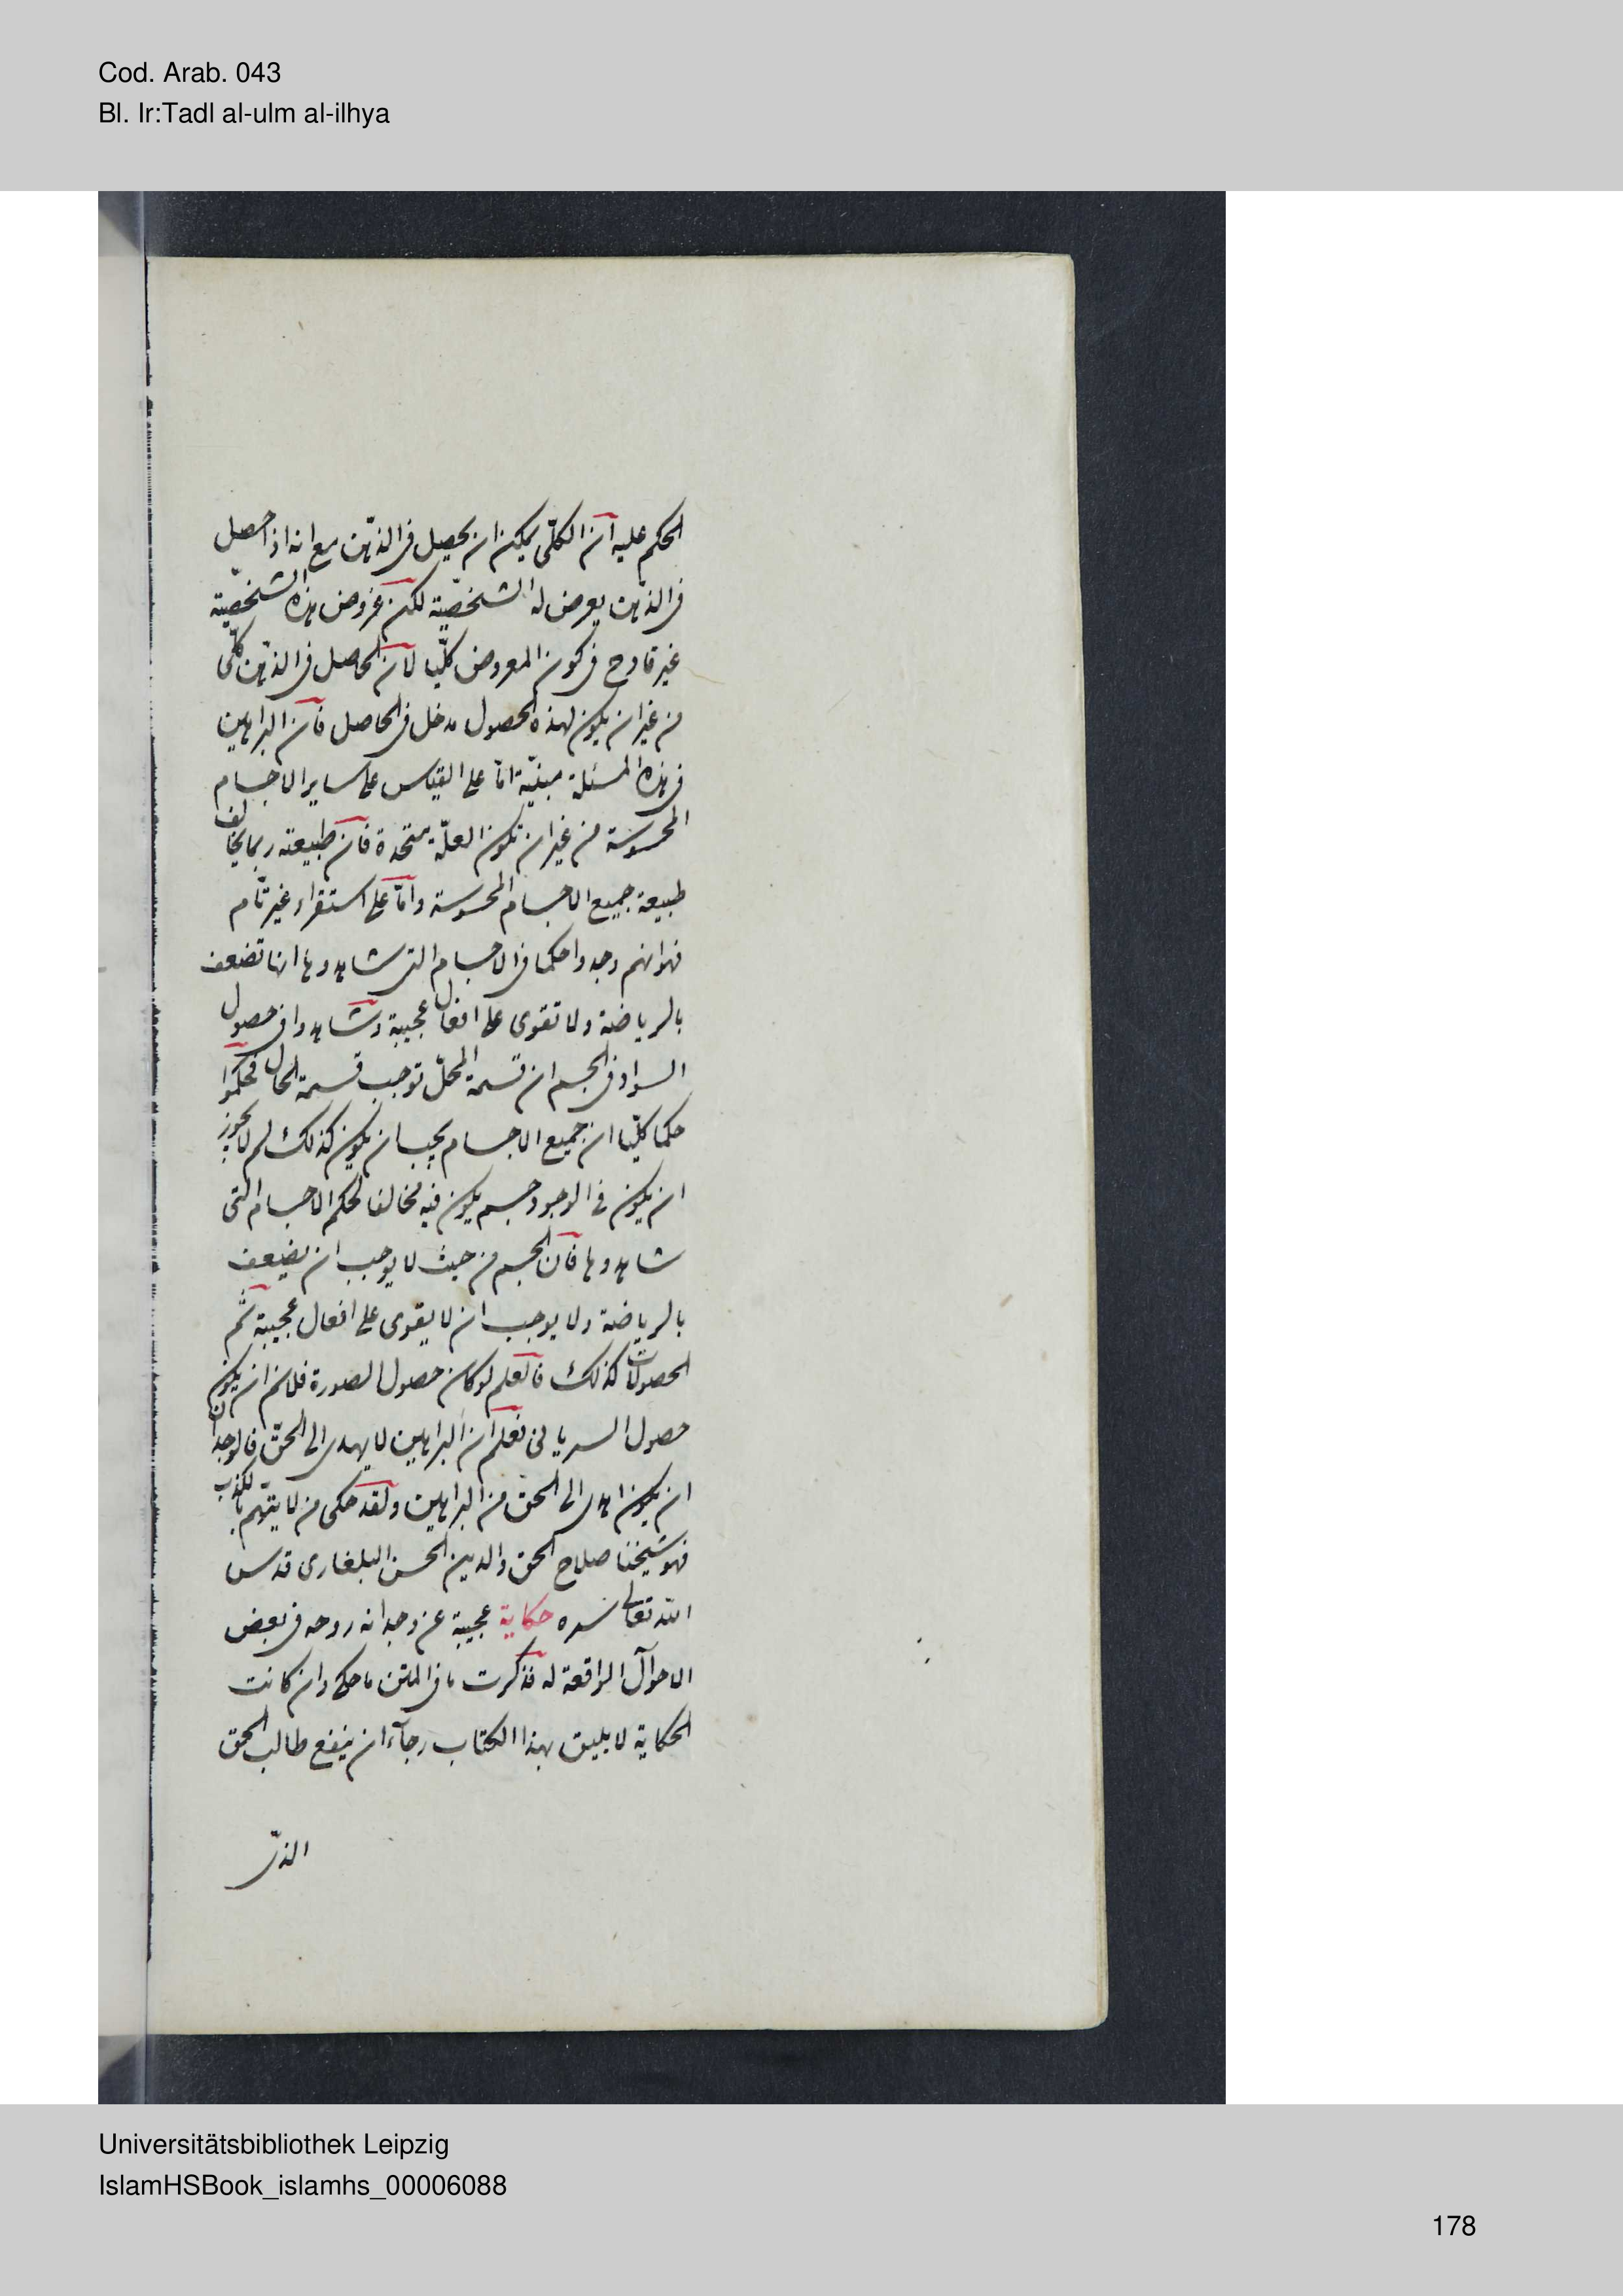 Cod. Arab. 043
Bl. Ir:Tadl al-ulm al-ilhya
الحكم عليه ان الكلّى يمكن ان يحصل فى الذهن مع انه اذا حصل
فى الذهن يعرض له الشخصيّة لكن عروض هذه الشخصيّة
غير قادح فى كون المعروض كلّيا لان الحاصل فى الذهن كلّى
من غير ان يكون لهذه الحصول مدخل فى الحاصل فان البراهين
فى هذه المسئلة مبنيّة امّا على القياس على ساير الاجسام
المحسوسة من غير ان تكون العلّة متحدة فان طبيعته ربما يخالف
طبيعة جميع الاجسام المحسوسة وامّا على استقراء غير تام
فهو انهم وجدوا حكما فى الاجسام التى شاهدوها انها تضعف
بالرياضة ولا تقوى على افعال عجيبة وشاهدوا فى حصول
السواد فى الجسم ان قسمة المحلّ توجب قسمة الحال فحكموا
حكما كلّيا ان جميع الاجسام يجب ان يكون كذلك لم لا يجوز
ان يكون فى الوجود جسم يكون فيه مخالفا لحكم الاجسام التى
شاهدوها فان الجسم من حيث لا يوجب ان يضعف
بالرياضة ولا يوجب ان لا يقوى على افعال عجيبة ثم
الحصولات كذلك فالعلم لو كان حصول الصورة فلانم ان يكون
حصول السريانى فعلم ان البراهين لا يهدى الى الحق فالوجدان
ان يكون اهدى الى الحق من البراهين ولقد حكى من لا يتهم بالكذب
فهو شيخنا صلاح الحق والدين الحسن البلغارى قدس
الله تعالى سره حكاية عجيبة عن وجدانه روحه فى بعض
الاحوال الواقعة له فذكرت ما فى المتن ما حكى وان كانت
الحكاية لا يليق بهذا الكتاب رجاء ان ينفع طالب الحق
الذى
Universitätsbibliothek Leipzig
IslamHSBook_islamhs_00006088
178